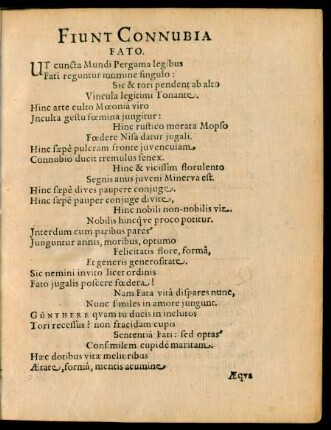 FIUNT CONNUBIA
FATO.
UT cuncta Mundi Pergama legibus
Fati reguntur momine singulo:
Sic & tori pendent ab alto
Vincula legitimi Tonante.
Hinc arte culto Mœoniâ viro
Jnculta gestu fœmina jungitur:
Hinc rustico morata Mopso
Fœdere Nisa datur jugali.
Hinc sæpè pulcram fronte juvenculam
Connubio ducit tremulus senex.
Hinc & vicissim florulento
Segnis anus juveni Minerva est.
Hinc sæpè dives paupere conjuge.
Hinc sæpè pauper conjuge divite,
Hinc nobili non-nobilis vir
Nobilis hincq́ve proco potitur.
Jnterdum cum paribus pares
Junguntur annis, moribus, optumo
Felicitatis flore, formâ,
Et generis generositate.
Sic nemini invito licet ordinis
Fato jugalis poscere fœdera!
Nam Fata vitâ dispares nunc,
Nunc similes in amore jungunt.
GÜNTHERE qvam tu ducis in inclutos
Tori recessus? non fracidam cupis
Sententiâ Fati: sed optas
Consimilem cupidè maritam.
Hæc dotibus vitæ melioribus
Ætate, formâ, mentis acumine
Æqva